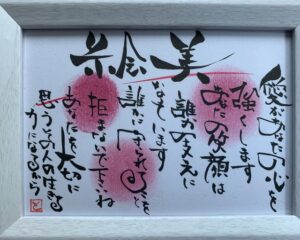 絵美
愛があなたの心を
強くします
あなたの笑顔は
誰かの支えに
なっています
誰かに されることを
拒まないで下さいね
あなたを大切に
思うその人の生きる
力になるから